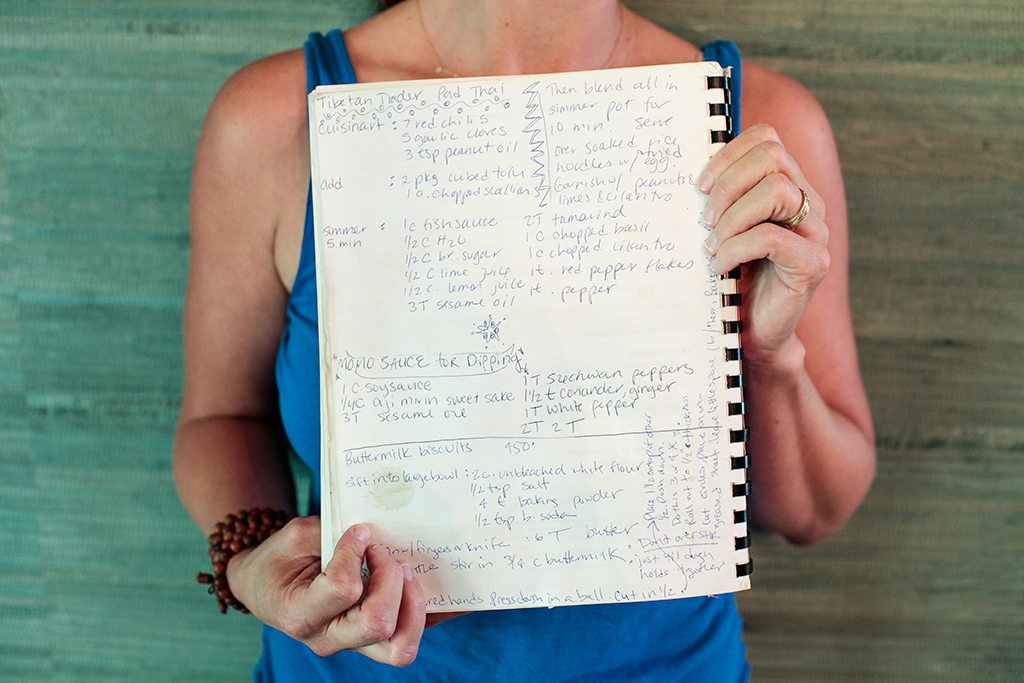 Tibetan Trader Pad Thai
Cuisinart : 7 red chilis
5 garlic cloves
3 tsp peanut oil
add : 2 pkg cubed tofu
1 c. chopped scallions
Then blend all in
simmer pot for
10 min. Serve
over soaked rice
noodles w/ fried egg.
Garnish w/ peanuts &
limes & cilantro
simmer 5 min : 1c fish sauce
1/2 C H2O
1/2 C br. sugar
1/2 C lime juice
1/2 c. lemon juice
3T sesame oil
2T tamarind
1 C chopped basil
1c chopped cilantro
1t. red pepper flakes
1t. pepper
MOMO SAUCE for Dipping
1 C. soy sauce
1/4 C aji mirin sweet sake
3T sesame oil
1T szechwan peppers
1 1/2 t coriander, ginger
1T white pepper
2T 2T
Buttermilk biscuits 450°
sift into large bowl : 2c. unbleached white flour
1/2 tsp salt
4 t baking powder
1/2 tsp b. soda
in w/ fingers or knife : 6 T butter
stir in 3/4 c buttermilk :
Don't over stir
just til dough
holds together
hands press dough in a ball. Cut in 1/2.
Place 1 1/2 on top of other
1/2, push down.
Do this 3 or 4 X.
Roll out to 1/2" thickness
Cut circles, place on un
greased sheet, leave little space b/t them. Bake